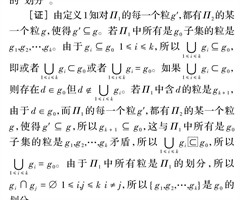 的 划分。
[证] 由定义1知对Π₁的每一个粒g′,都有Π₂的某
一个粒g,使得g′ ⊆ g。若Π₁中所有是g₀子集的粒是
g₁,g₂,…,gₖ。由于gᵢ ⊆ g₀ 1≤i≤k,所以 ⋃ gᵢ ⊆ g₀,
1≤i≤k
即或者 ⋃ gᵢ ⊂ g₀或者 ⋃ gᵢ = g₀。如果 ⋃ gᵢ ⊂ g₀,
1≤i≤k 1≤i≤k 1≤i≤k
则存在d ∈ g₀但d ∉ ⋃ gᵢ。若Π₁中含d的粒是gₖ₊₁,
1≤i≤k
由于d ∈ g₀,而Π₁的每一个粒g′,都有Π₂的某一个
粒g,使得g′ ⊆ g,所以gₖ₊₁ ⊆ g₀,这与Π₁中所有是g₀
子集的粒是g₁,g₂,…,gₖ矛盾,所以 ⋃ gᵢ ⊂ g₀,所以
1≤i≤k
⋃ gᵢ = g₀。由于Π₁中所有粒是Π₁的划分,所以
1≤i≤k
gᵢ ∩ gⱼ = ∅ 1≤i,j≤k i≠j,所以{g₁,g₂,…,gₖ}是g₀的